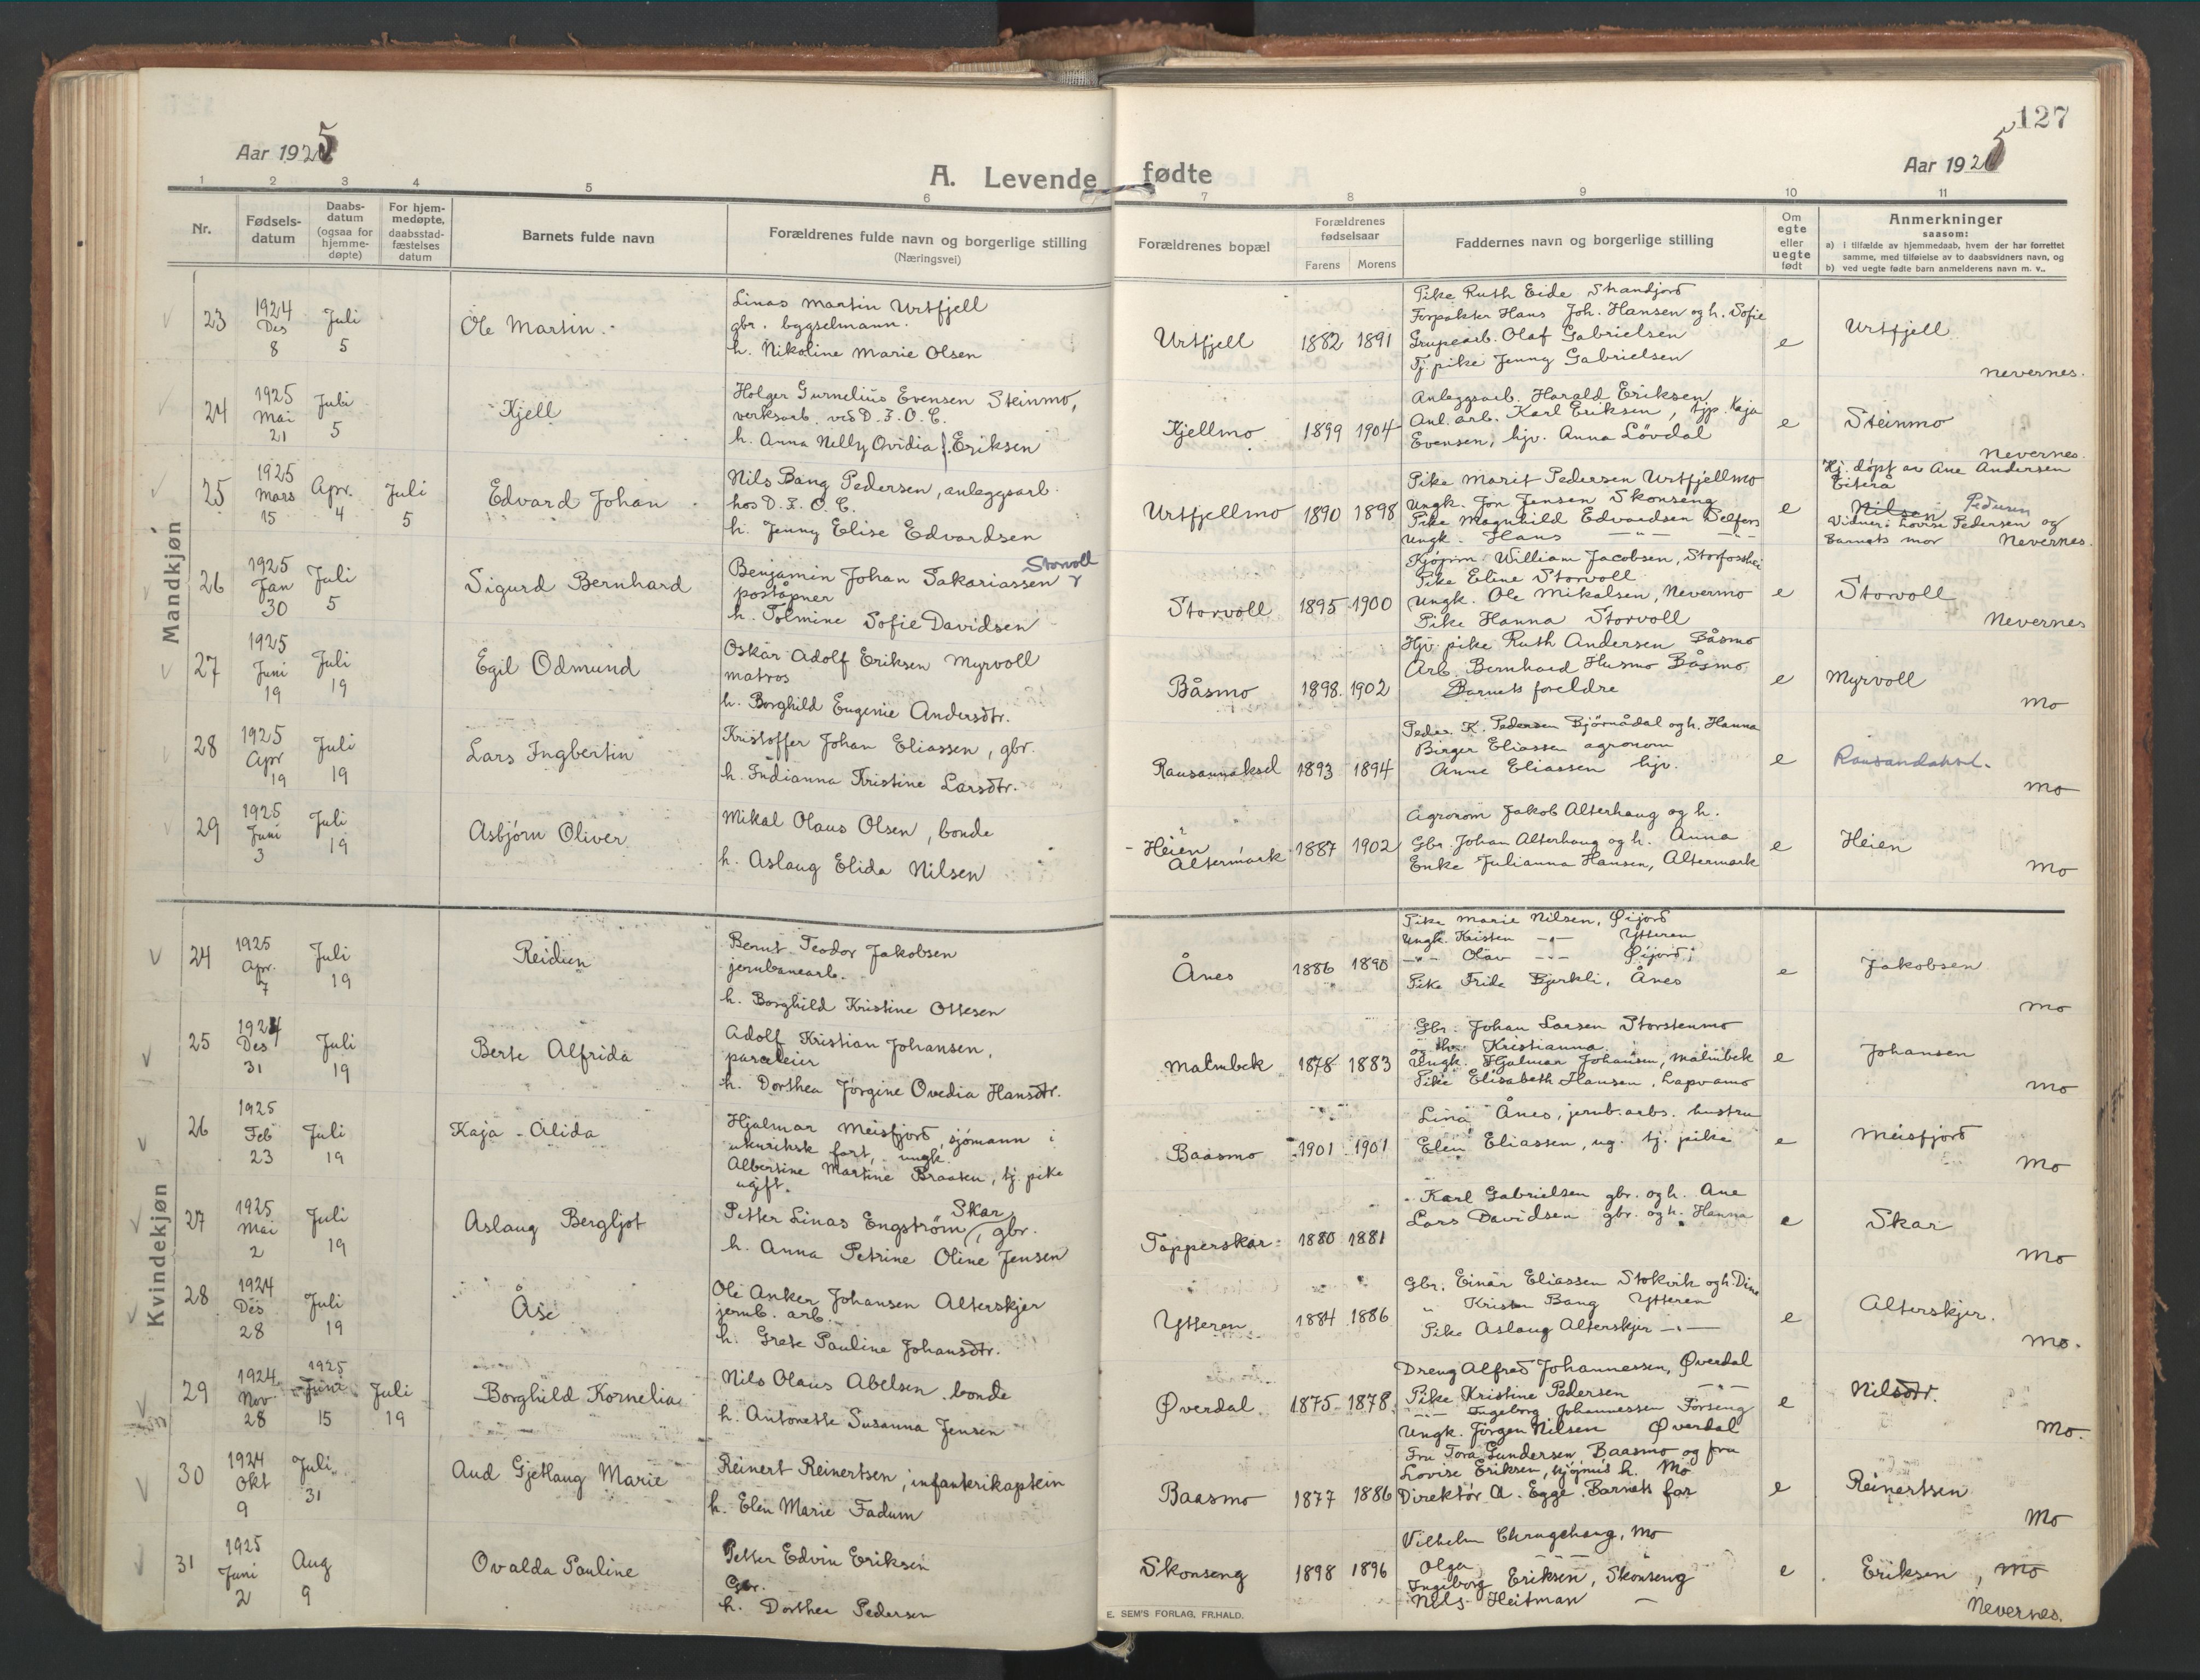 127
Aar 1925
Aar 1925
A. Levende fødte
1 2 3 4 5 6 7 8 9 10 11
Nr.
Fødsels-
datum
Daabs-
datum
(ogsaa for
hjemme-
døpte)
For hjem-
medøpte,
daabsstad-
fæstelses
datum
Barnets fulde navn
Forældrenes fulde navn og borgerlige stilling
(Næringsvei)
Forældrenes bopæl
Forældrenes
fødselsaar
Farens Morens
Faddernes navn og borgerlige stilling
Om
egte
eller
uegte
født
Anmerkninger
saasom:
a) i tilfælde av hjemmedaab, hvem der har forrettet
samme, med tilføielse av to daabsvidners navn, og
b) ved uegte fødte barn anmelderens navn m. v..
Mandkjøn
23
1924
Des
8
Juli
5
Ole Martin
Linas Martin Urtfjell
gbr. bygselmann.
h. Nikoline Marie Olsen
Urtfjell
1882 1891
Pike Ruth Eide Strandjord
Forpakter Hans Joh. Hansen og h. Sofie
Grupearb. Olaf Gabrielsen
Tj. pike Jenny Gabrielsen
e
Urtfjell
Nevernes.
24
1925
Mai
21
Juli
5
Kjell
Holger Gurnelius Evensen Steinmo,
verksarb. ved D. F. O. C.
h. Anna Nelly Ovidia f. Eriksen
Kjellmo
1899 1904
Anleggsarb. Harald Eriksen
Anl. arb. Karl Eriksen, tjp. Kaja
Evensen, hjv. Anna Lövdal
e
Steinmo
Nevernes.
25
1925
Mars
15
Apr.
4
Juli
5
Edvard Johan
Nils Bang Pedersen, anleggsarb.
hos D. F. O. C.
h. Jenny Elise Edvardsen
Urtfjellmo
1890 1898
Pike Marit Pedersen Urtfjellmo
Ungk. Jon Jensen Skonseng
Pike Magnhild Edvardsen Delfors
Ungk. Hans — " — — " —
e
Hj. döpt av Ane Andersen
Eiterå
Nilsen Pedersen
Vidner: Lovise Pedersen og
Barnets mor Nevernes.
26
1925
Jan
30
Juli
5
Sigurd Bernhard
Benjamin Johan Sakariassen Storvoll
poståpner
h. Tolmine Sofie Davidsen
Storvoll
1895 1900
Kjöpm. William Jacobsen, Storfosshei
Pike Eline Storvoll
Ungk. Ole Mikalsen, Nevermo
Pike Hanna Storvoll
e
Storvoll
Nevernes
27
1925
Juni
19
Juli
19
Egil Odmund
Oskar Adolf Eriksen Myrvoll
matros
h. Borghild Eugenie Andersdtr.
Båsmo
1898 1902
Hjv. pike Ruth Andersen Båsmo
Arb. Bernhard Husmo Båsmo
Barnets foreldre
e
Myrvoll
Mo
28
1925
Apr
19
Juli
19
Lars Ingbertin
Kristoffer Johan Eliassen, gbr.
h. Indianna Kristine Larsdtr.
Rausannaksel
1893 1894
Peder K. Pedersen Björnådal og h. Hanna
Birger Eliassen agronom
Anne Eliassen hjv.
e
Rausandaksel.
Mo
29
1925
Juni
3
Juli
19
Asbjörn Oliver
Mikal Olaus Olsen, bonde
h. Aslaug Elida Nilsen
Heien
Altermark
1887 1902
Agronom Jakob Alterhaug og h.
Gbr. Johan Alterhaug og h. Anna
Enke Julianna Hansen, Altermark
e
Heien
Mo
Kvindekjøn
24
1925
Apr.
7
Juli
19
Reidun
Bernt Teodor Jakobsen
jernbanearb.
h. Borghild Kristine Ottesen
Ånes
1886 1890
Pike Marie Nilsen, Øijord
Ungk. Kristen — " — Ytteren
— " — Olav — " — Øijord
Pike Frida Bjerkli, Ånes
e
Jakobsen
Mo
25
1924
Des
31
Juli
19
Berte Alfrida
Adolf Kristian Johansen,
parseleier
h. Dorthea Jörgine Ovedia Hansdtr.
Malmbek
1878 1883
Gbr. Johan Larsen Storstenmo
og h. Kristianna
Ungk. Hjalmar Johansen, Malmbek
Pike Elisabeth Hansen, Lapvamo
e
Johansen
Mo
26
1925
Feb
23
Juli
19
Kaja Alida
Hjalmar Meisfjord, sjömann i
utenriksk fart, ungk.
Albertine Martine Braaten, tj. pike
ugift.
Baasmo
1901 1901
Lina Ånes, jernb.arbs. hustru
Elen Eliassen, ug. tj. pike
e
Meisfjord
Mo
27
1925
Mai
2
Juli
19
Aslaug Bergljot
Petter Linas Engström Skar, gbr.
h. Anna Petrine Oline Jensen
Tapperskar
1880 1881
Karl Gabrielsen gbr. og h. Ane
Lars Davidsen gbr. og h. Hanna
e
Skar
Mo
28
1924
Des
28
Juli
19
Åse
Ole Anker Johansen Alterskjer
jernb. arb.
h. Grete Pauline Johansdtr.
Ytteren
1884 1886
Gbr. Einar Eliassen Stokvik og h. Dine
" Kristen Bang Ytteren
Pike Aslaug Alterskjer — " —
e
Alterskjer.
Mo.
29
1924
Nov
28
1925
Juni
15
Juli
19
Borghild Kornelia
Nils Olaus Abelsen, bonde
h. Antonette Susanna Jensen
Øverdal
1875 1878
Dreng Alfred Johannessen, Øverdal
Pike Kristine Pedersen — " —
— " — Ingeborg Johannessen Forseng
Ungk. Jörgen Nilsen Øverdal
e
Nilsdtr.
Mo.
30
1924
Okt
9
Juli
31
Aud Gjetlaug Marie
Reinert Reinertsen, infanterikaptein
h. Elen Marie Fadum
Baasmo
1877 1886
Fru Tora Gundersen, Baasmo og fru
Lovise Eriksen, kjöpm.s h. Mo
Direktör A. Egge. Barnets far
e
Reinertsen
Mo
31
1925
Juni
2
Aug
9
Ovalda Pauline
Petter Edvin Eriksen
Gbr.
h. Dorthea Pedersen
Skonseng
1898 1896
Vilhelm Mo
Olga — " —
Ingeborg Eriksen, Skonseng
Nils Heitman —
e
Eriksen, Mo
Nevernes.
E. SEM'S FORLAG, FR.HALD.